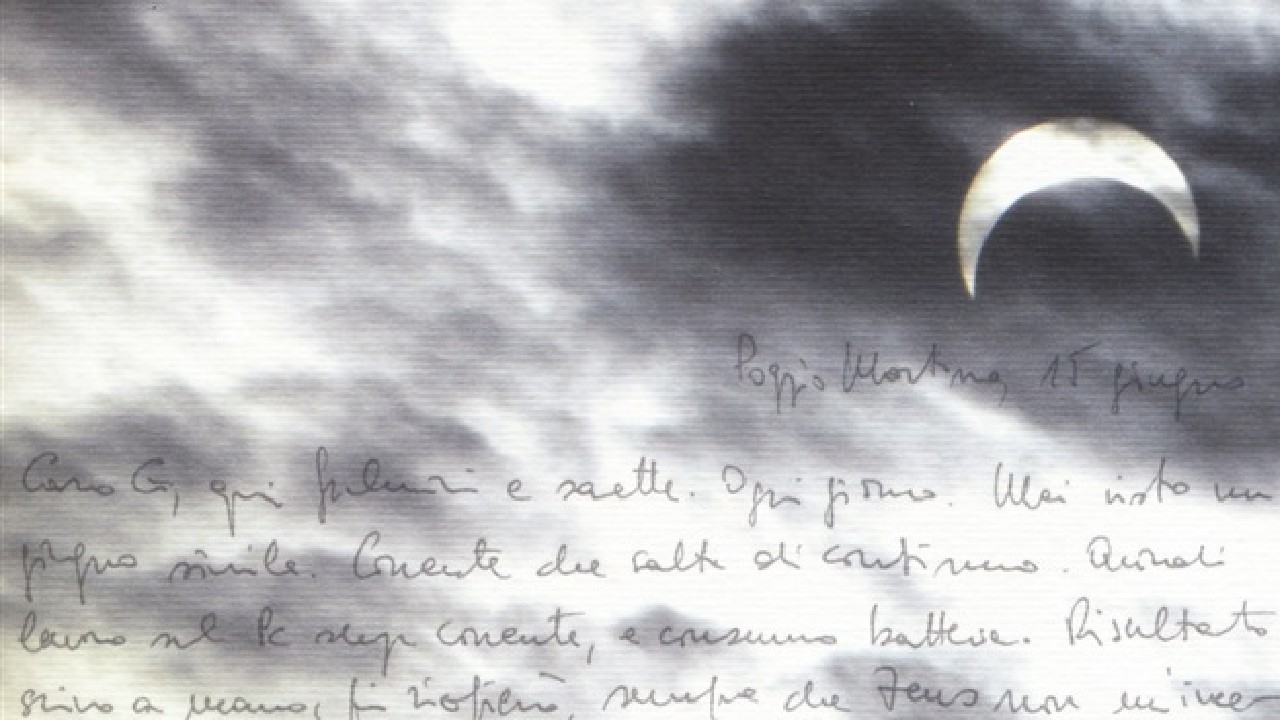 Poggio Martino, 15 giugno
Caro G, qui fulmini e saette. Ogni giorno. Mai visto un
giugno simile. Corrente che salta di continuo. Quindi
lavoro sul Pc senza corrente, e consumo batteria. Risultato
scrivo a mano, fin sempre che Zeus non m'ince-